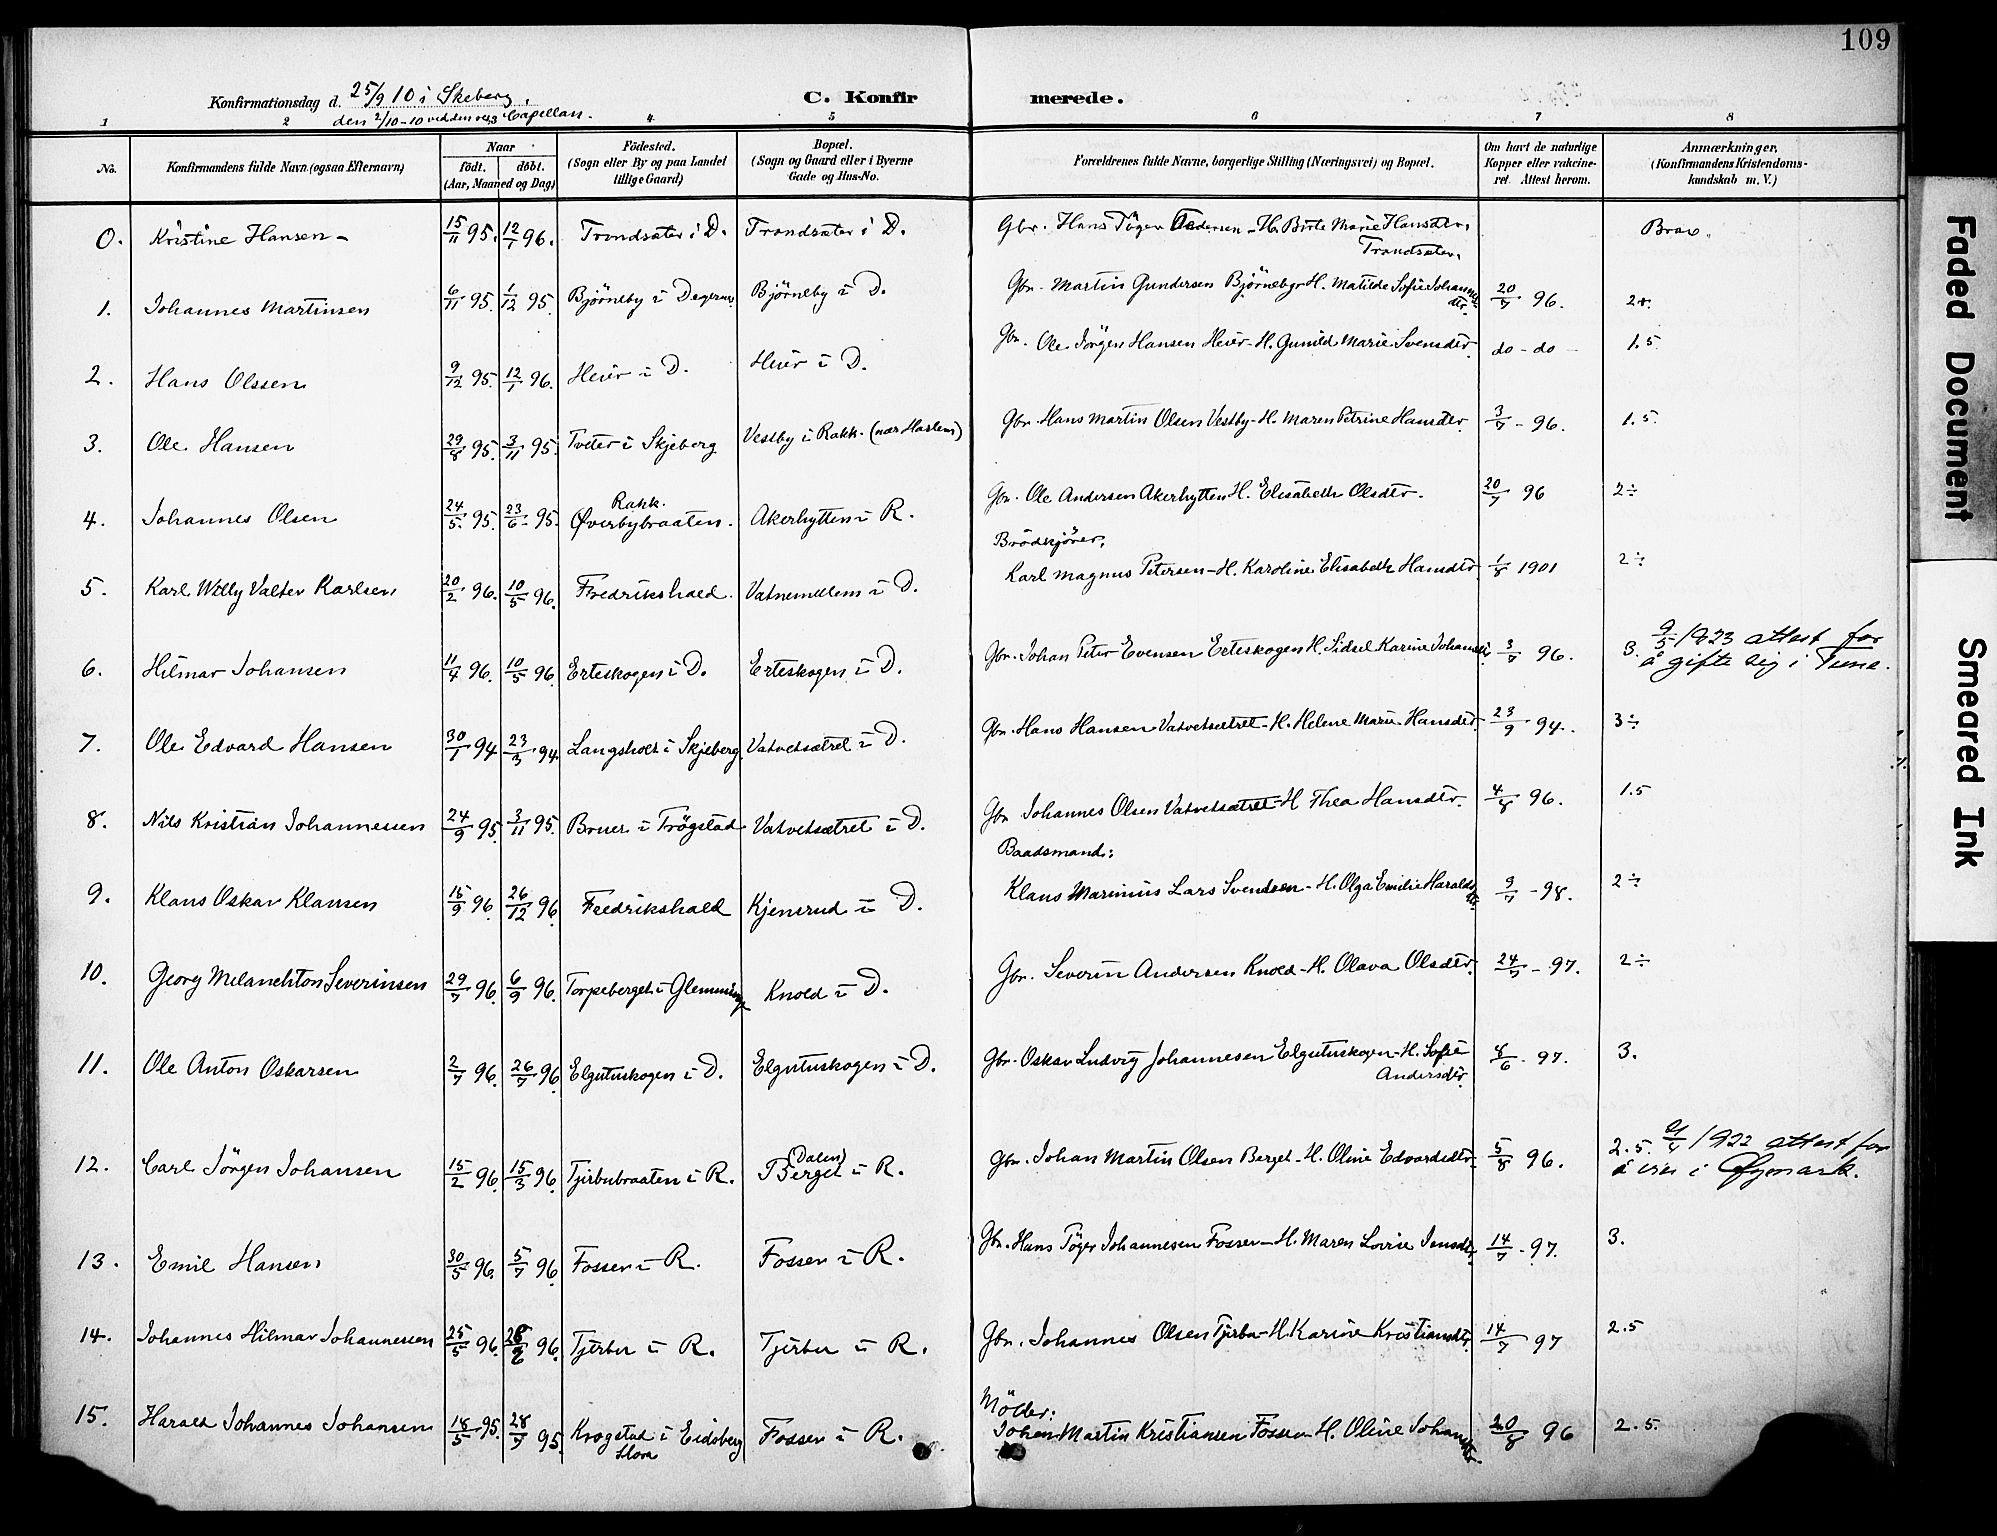 109
Konfirmationsdag d. 25/9 10 i Skeberg.
C. Konfirmerede.
den 2/10-10 ved den Capellan.
1 2 3 4 5 6 7 8
No.
Konfirmandens fulde Navn (ogsaa Efternavn)
Naar
födt. döbt.
(Aar, Maaned og Dag)
Födested.
(Sogn eller By og paa Landet
tillige Gaard)
Bopæl.
(Sogn og Gaard eller i Byerne
Gade og Hus-No.
Forældrenes fulde Navne, borgerlige Stilling (Næringsvei) og Bopæl.
Om havt de naturlige
Kopper eller vakcine-
ret. Attest herom.
Anmærkninger,
(Konfirmandens Kristendoms-
kundskab m. V.)
0. Kristine Hansen - 15/11 95. 12/1 96. Trondsæter i D. Trondsæter i D. Gbr. Hans Töger Pedersen - H. Birte Marie Hansdtr. Brav.
Trondsæter.
1. Johannes Martinsen 6/11 95. 1/12 95. Björneby i Degernes Björneby i D. Gbr. Martin Gundersen Björneby H. Matilde Sofie Johannes- 20/7 96. 2+.
dtr.
2. Hans Olssen 9/12 95. 12/1 96. Heier i D. Heier i D. Gbr. Ole Jörgen Hansen Heier - H. Gunild Marie Svensdtr. do - do - 1.5
3. Ole Hansen 29/8 95. 3/11 95. Tveter i Skjeberg Vestby i Rakk. (nær Haslem) Gbr. Hans Martin Olsen Vestby - H. Maren Petrine Hansdtr. 3/7 - 96. 1.5
Rakk.
4. Johannes Olsen 24/5 95. 23/6 95 Øverbybraaten. Akerhytten i R. Gbr. Ole Andersen Akerhytten H. Elisabeth Olsdtr. 20/7 96 2÷
Brödkjörer,
5. Karl Willy Valter Karlsen 20/2 96. 10/5 96. Fredrikshald. Vatnemellem i D. Karl Magnus Petersen - H. Karoline Elisabeth Hansdtr. 1/8 1901 2÷
6. Hilmar Johansen 11/4 96. 10/5 96. Erteskogen i D. Erteskogen i D. Gbr. Johan Peter Evensen Erteskogen H. Sidsel Karine Johansdtr. 3/7 96. 3. 9/5 1923 attest for
å gifte sig i Tune.
7. Ole Edvard Hansen 30/1 94 23/3 94. Langsholt i Skjeberg. Vatvetsætret i D. Gbr. Hans Hansen Vatvetsætret - H. Helene Marie Hansdtr. 23/9 94. 3÷
8. Nils Kristian Johannessen 24/9 95. 3/11 95. Bruer i Trögstad Vatvetsætret i D. Gbr. Johannes Olsen Vatvetsætret - H. Thea Hansdtr. 4/8 96. 1.5
Baadsmand:
9. Klaus Oskar Klausen 15/9 96. 26/12 96 Fredrikshald Kjensrud i D. Klaus Marinius Lars Svendsen - H. Olga Emilie Haralds- 9/7 - 98. 2÷
dtr.
10. Georg Melanchton Severinsen 29/7 96. 6/9 96. Torpeberget i Glemminge Knold i D. Gbr. Severin Andersen Knold - H. Olava Olsdtr. 24/7 - 97. 2÷
11. Ole Anton Oskarsen 2/7 96. 26/7 96 Elgutuskogen i D. Elgutuskogen i D. Gbr. Oskar Ludvig Johannesen Elgutuskogen - H. Sofie 8/6 - 97. 3.
Andersdtr.
(Dalen)
12. Carl Jörgen Johansen 15/2 96. 15/3 96. Tjerbubraaten i R. Berget i R. Gbr. Johan Martin Olsen Berget - H. Oline Edvardsdtr. 5/8 96. 2.5. 21/4 1922 attest for
å vies i Øymark.
13. Emil Hansen 30/5 96. 5/7 96. Fossen i R. Fossen i R. Gbr. Hans Töger Johannesen Fossen - H. Maren Lovise Jensdtr. 14/7 - 97. 3.
14. Johannes Hilmar Johannessen 25/5 96. 28/6 96. Tjerbu i R. Tjerbu i R. Gbr. Johannes Olsen Tjerbu - H. Karine Kristiansdtr. 14/7 97 2.5
Möller:
15. Harald Johannes Johansen 18/5 95. 28/7 95. Krogstad i Eidsberg Fossen i R. Johan Martin Kristiansen Fossen H. Oline Johans- 20/8 96 2.5.
Slora dtr.
Faded Document
Smeared Ink